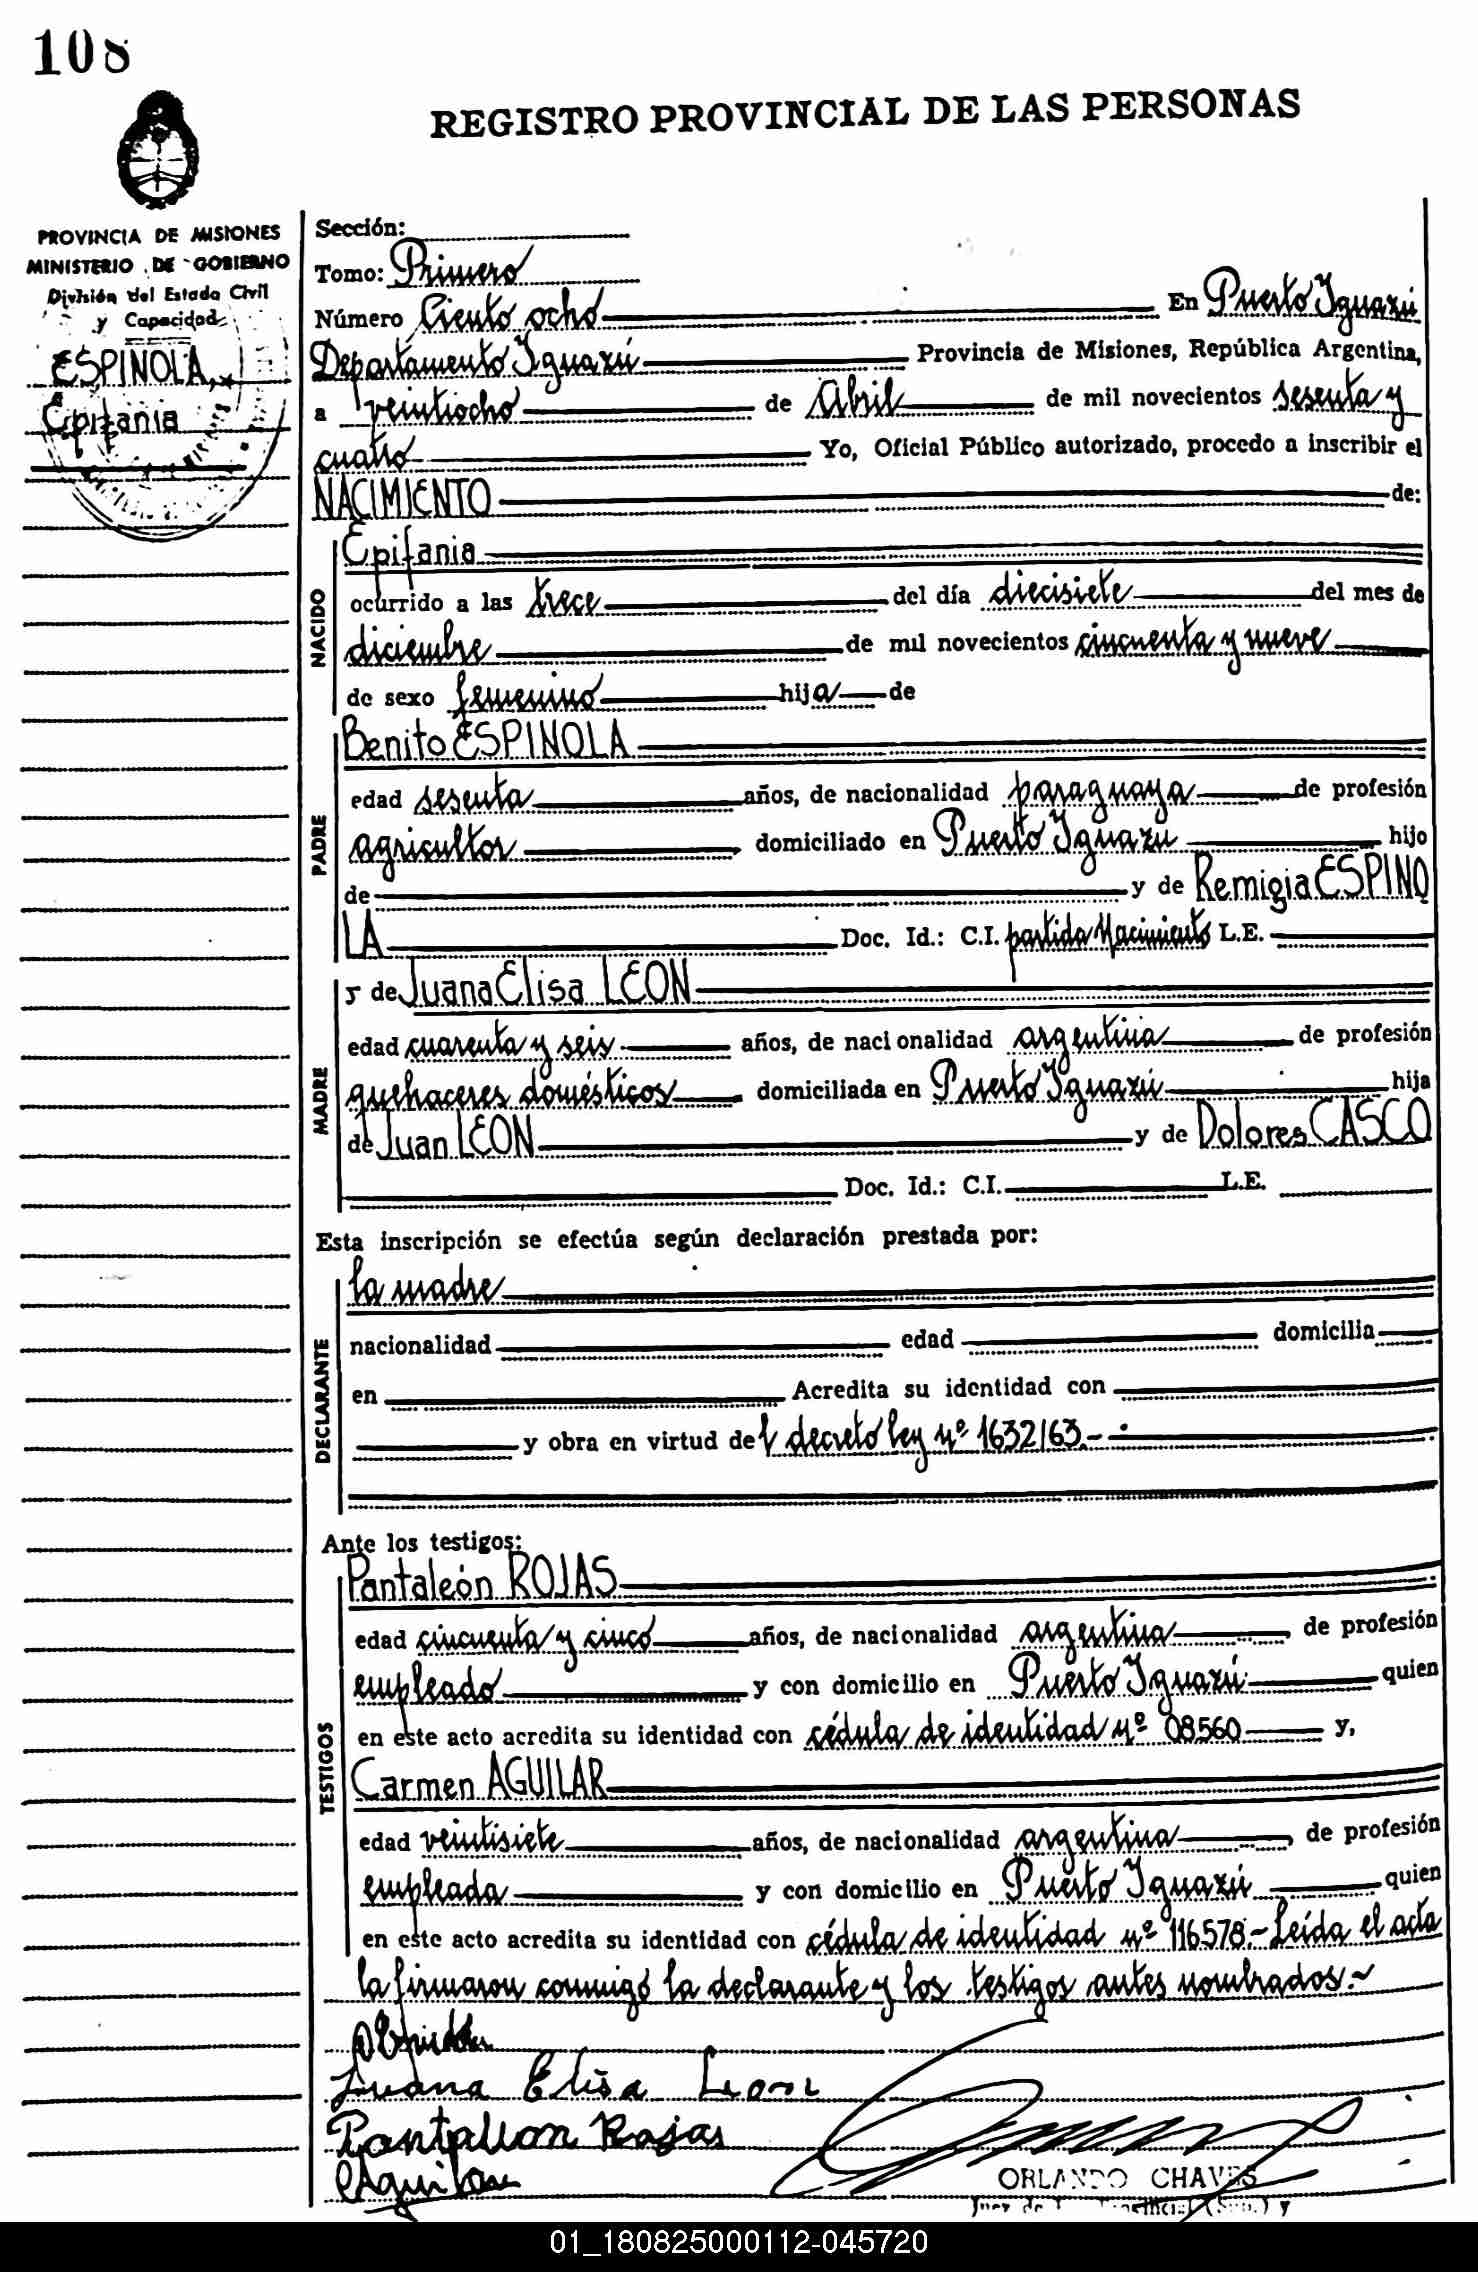 108
REGISTRO PROVINCIAL DE LAS PERSONAS
PROVINCIA DE MISIONES
MINISTERIO DE GOBIERNO
División del Estado Civil
y Capacidad
ESPINOLA,
Epifania
Sección:
Tomo: Primero
Número Ciento ocho En Puerto Iguazú
Departamento Iguazú Provincia de Misiones, República Argentina,
a veintiocho de Abril de mil novecientos sesenta y
cuatro Yo, Oficial Público autorizado, procedo a inscribir el
NACIMIENTO de:
NACIDO
Epifania
ocurrido a las trece del día diecisiete del mes de
diciembre de mil novecientos cincuenta y nueve
de sexo femenino hija de
PADRE
Benito ESPINOLA
edad sesenta años, de nacionalidad paraguaya de profesión
agricultor domiciliado en Puerto Iguazú hijo
de y de Remigia ESPINO
LA Doc. Id.: C.I. partida Nacimiento L.E.
MADRE
y de Juana Elisa LEON
edad cuarenta y seis años, de nacionalidad argentina de profesión
quehaceres domésticos domiciliada en Puerto Iguazú hija
de Juan LEON y de Dolores CASCO
Doc. Id.: C.I. L.E.
Esta inscripción se efectúa según declaración prestada por:
DECLARANTE
la madre
nacionalidad edad domicilia
en Acredita su identidad con
y obra en virtud del decreto ley nº 1632/63.-
Ante los testigos:
TESTIGOS
Pantaleón ROJAS
edad cincuenta y cinco años, de nacionalidad argentina de profesión
empleado y con domicilio en Puerto Iguazú quien
en este acto acredita su identidad con cédula de identidad nº 08560 y,
Carmen AGUILAR
edad veintisiete años, de nacionalidad argentina, de profesión
empleada y con domicilio en Puerto Iguazú quien
en este acto acredita su identidad con cédula de identidad nº 116578.- Leída el acta
la firmaron conmigo la declarante y los testigos antes nombrados.-
Juana Elisa Leon
Pantalion Rojas
Aguilar
ORLANDO CHAVES
Juez de y
01_180825000112-045720